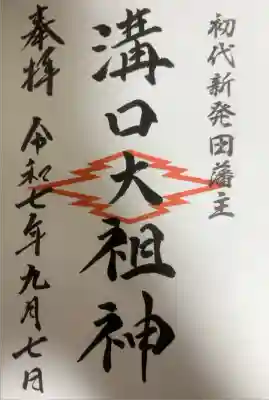 初代新発田藩主
溝口大祖神
奉拝
令和七年九月七日